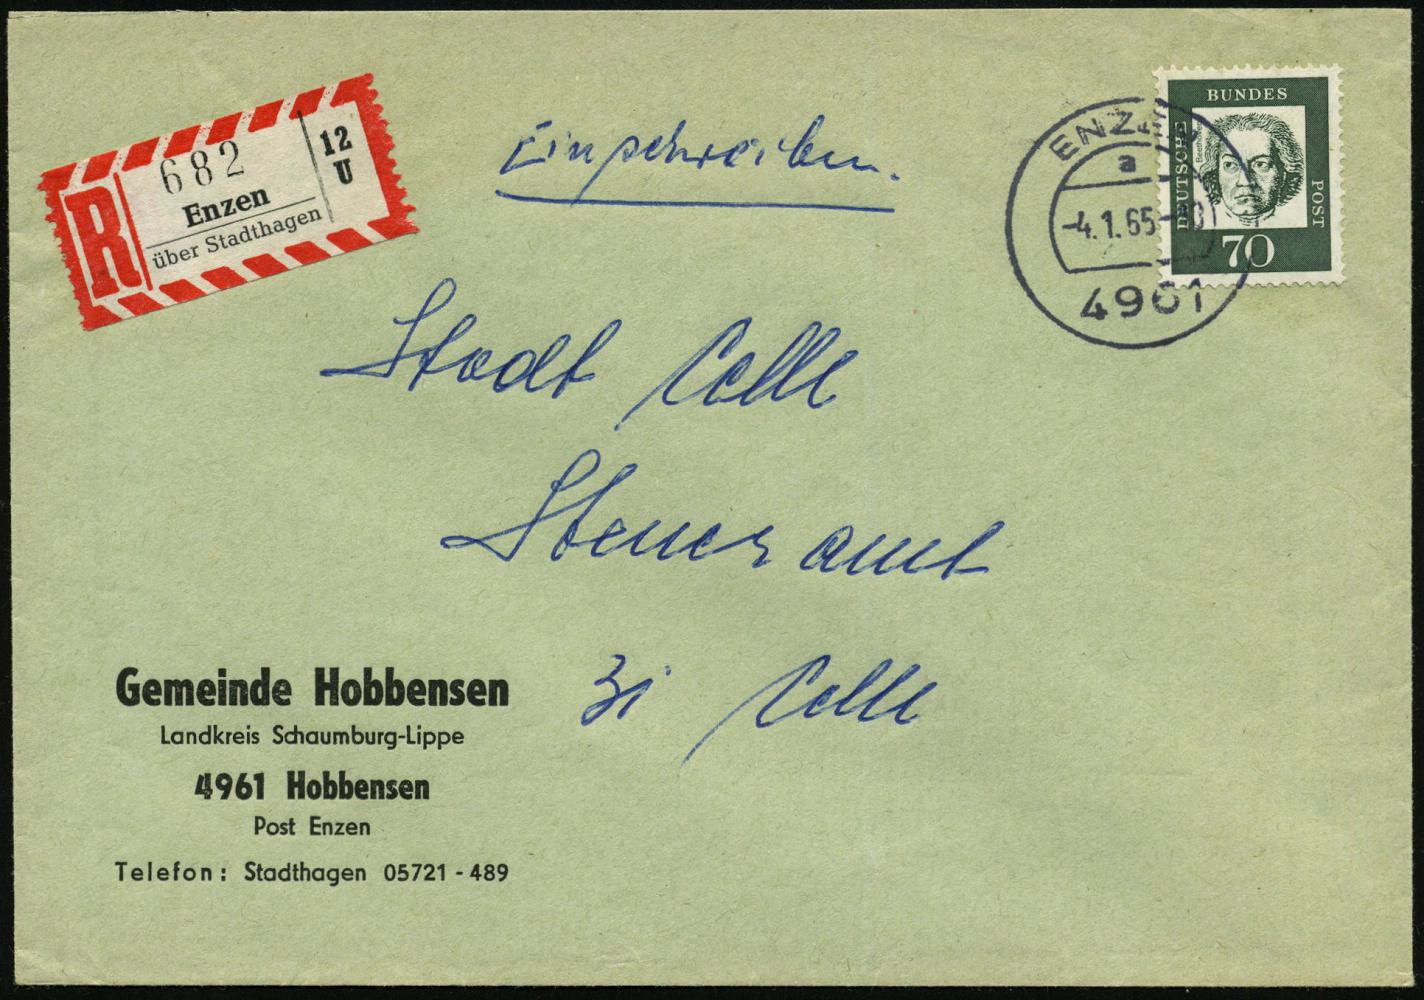 R
682
Enzen
über Stadthagen
12
U
Einschreiben.
ENZEN
a
-4.1.65-
4961
BUNDES
DEUTSCHE
POST
Beethoven
70
Stadt Celle
Steueramt
3i Celle
Gemeinde Hobbensen
Landkreis Schaumburg-Lippe
4961 Hobbensen
Post Enzen
Telefon: Stadthagen 05721-489